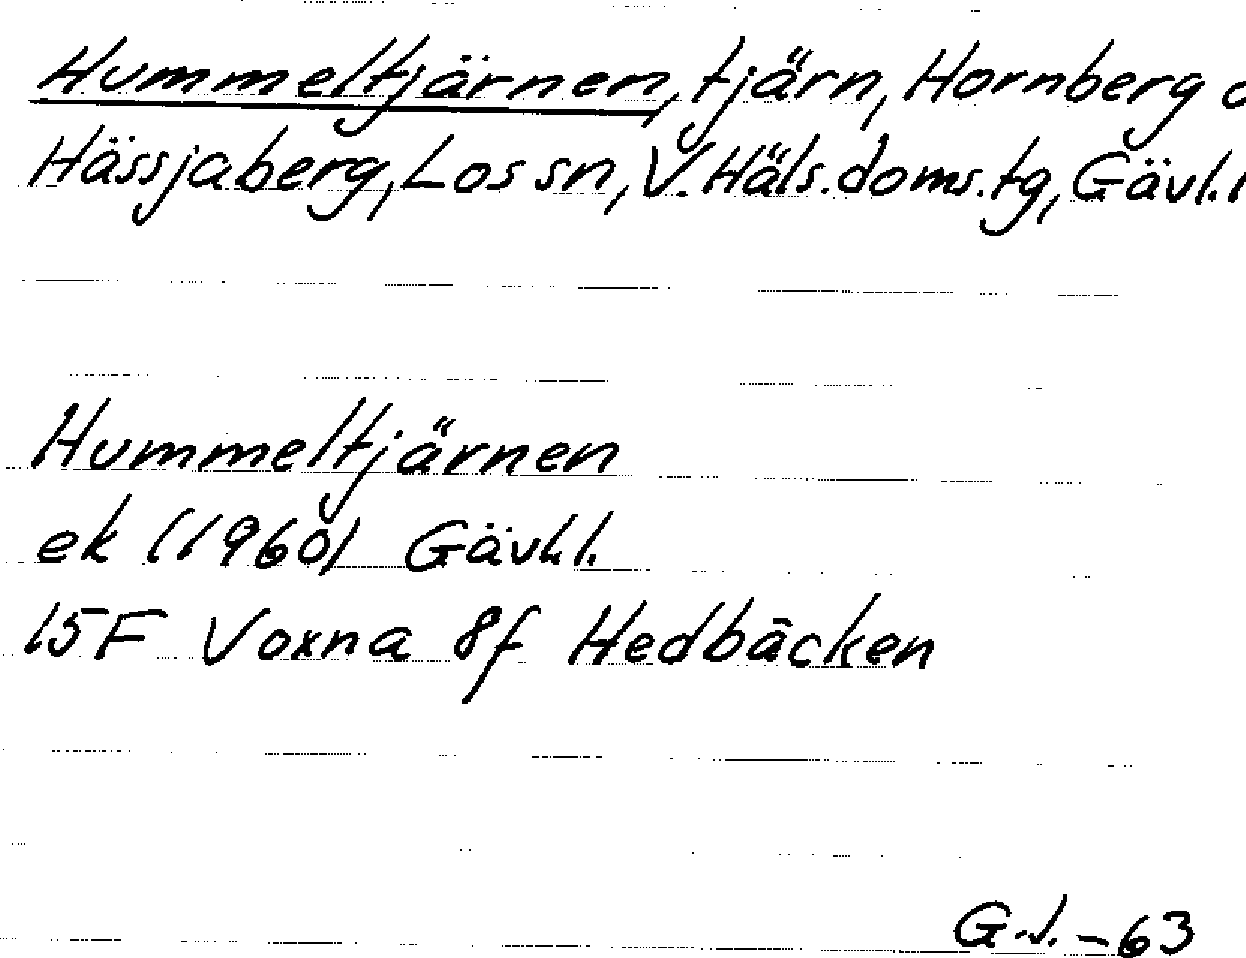 Hummeltjärnen, tjärn, Hornberg o
Hässjaberg, Los sn, V. Häls. doms. tg, Gävl. l
Hummeltjärnen
ek (1960) Gävl. l.
15F Voxna 8f Hedbäcken
G.J. -63